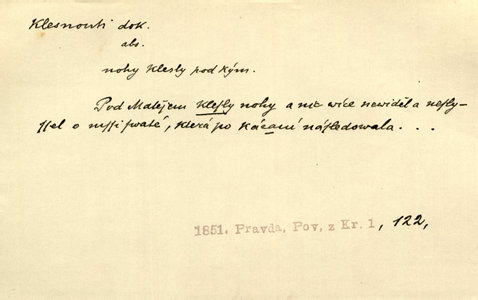 Klesnouti dok.
abs.
nohy klesly pod kým.
Pod Matějem klesly nohy a nic wíce newiděl a nesly-
ssel o mssi swaté, která po kázaní následowala...
1851. Pravda, Pov, z Kr. 1, 122,